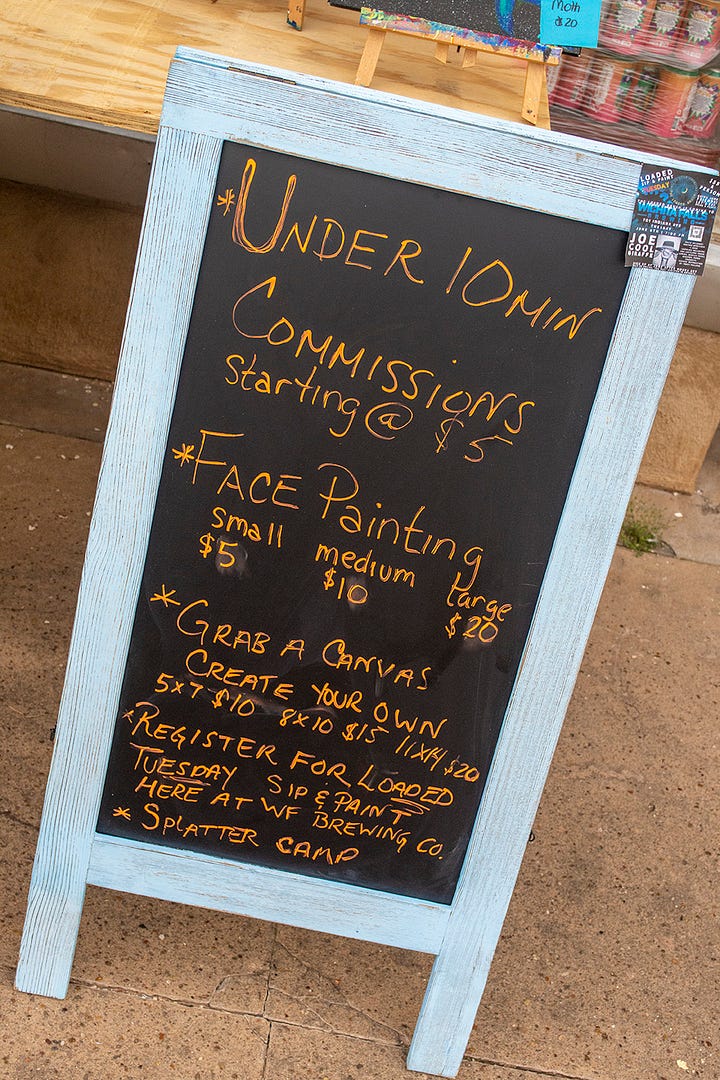 Moth
$20
LOADED
SIP & PAINT
TUESDAY
WICHITA FALLS
JOE
COOL
GIRAFFE
*UNDER 10MIN
COMMISSIONS
Starting @ $5
*FACE Painting
small medium large
$5 $10 $20
*GRAB A CANVAS
CREATE YOUR OWN
5x7 $10 8x10 $15 11x14 $20
*REGISTER FOR LOADED
TUESDAY SIP & PAINT
HERE AT WF BREWING CO.
* SPLATTER CAMP